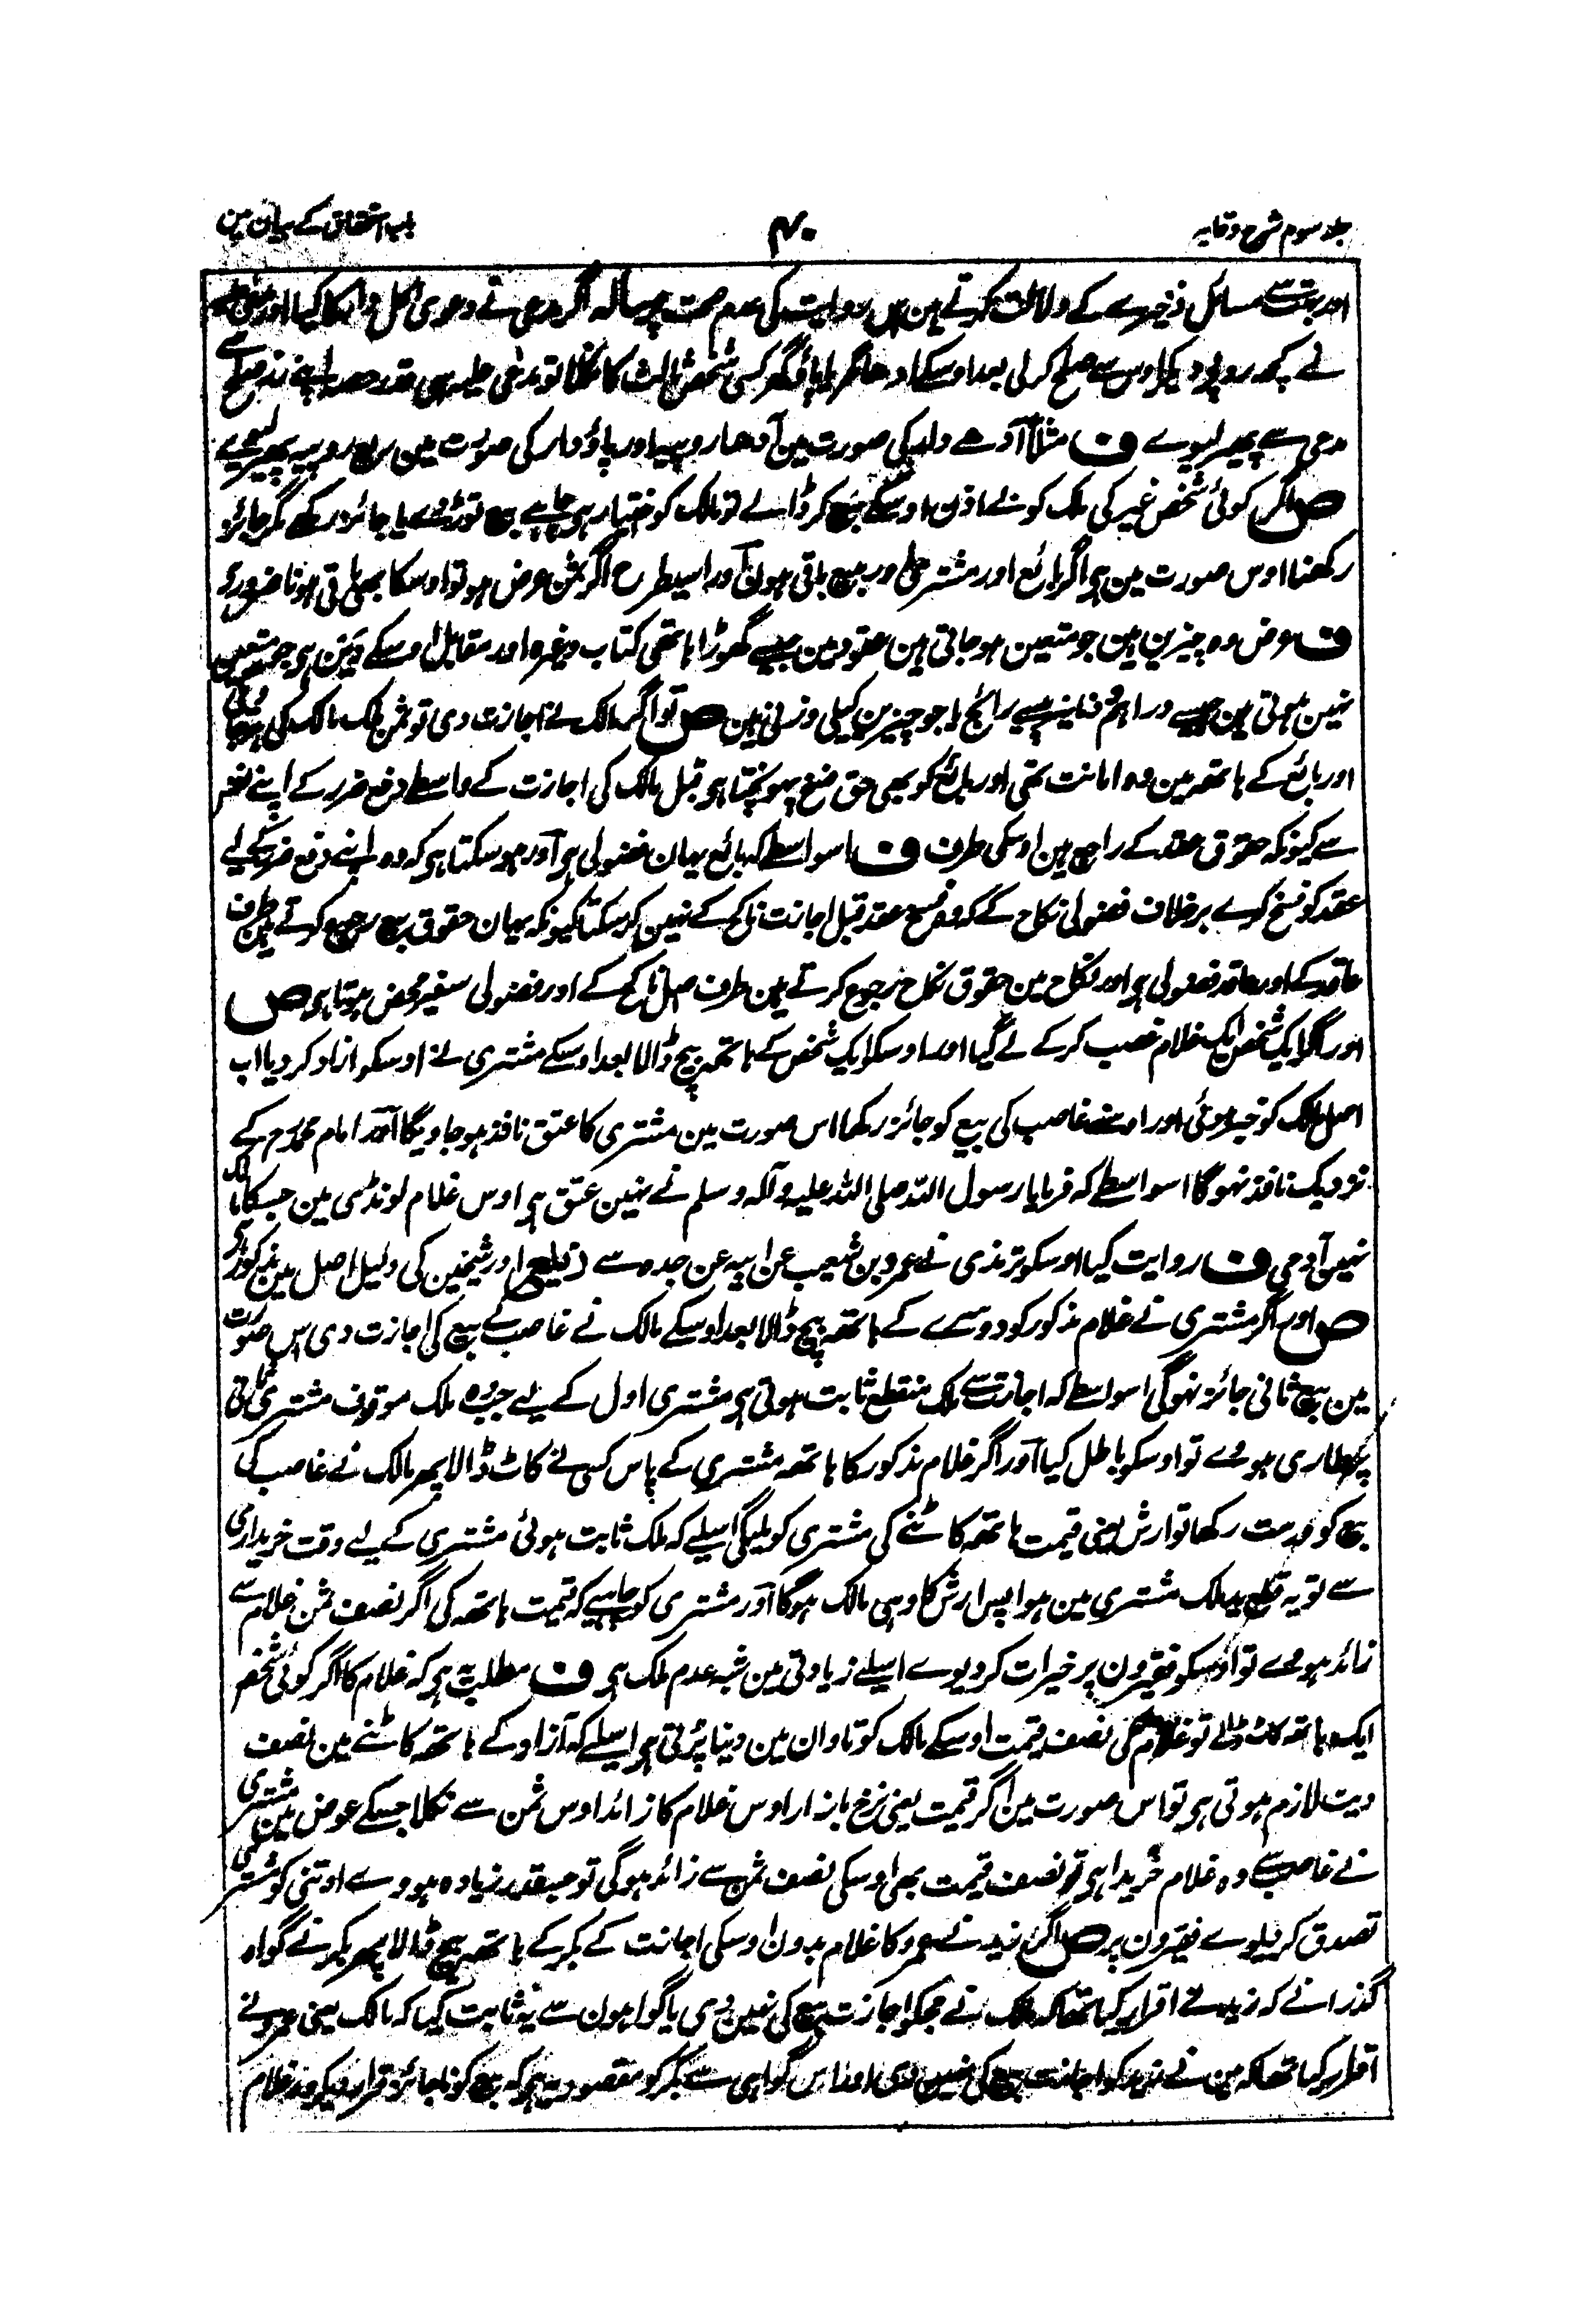 جلد سوم شرح وقایہ
۴۰
باب استحقاق کے بیان مین
اور بہت سے مسائل ذخیرے کے دلالت کرتے ہین اس روایت کی عدم صحت پر مسألہ اگر مدعی نے دعوی کل دار کا کیا اور
نے کچھ روپیہ دیکر اوس سے صلح کر لی بعد اوسکے آدھا گھر یا پاؤ گھر کسی شخص ثالث کا نکلا تو مدعی علیہ اسی قدر حصہ اپنے زر صلح سے
مدعی سے پھیر لیوے ف مثلاً آدھے دار کی صورت مین آدھا روپیہ اور پاؤ دار کی صورت مین ربع روپیہ پھیر لیوے
ص اگر کوئی شخص غیر کی ملک کو بے اذن اوسکے بیع کر ڈالے تو مالک کو اختیار ہی چاہے بیع توڑ دے یا جائز رکھے مگر جائز
رکھنا اوس صورت مین ہی اگر بائع اور مشتری اور مبیع باقی ہون آور اسیطرح اگر ثمن عرض ہو تو اوسکا بھی باقی ہونا ضرور ہی
ف عرض وہ چیزین ہین جو متعین ہو جاتی ہین عقود مین جیسے گھوڑا ہاتھی کتاب وغیرہ اور مقابل اوسکے دَین ہی جو متعین
نہین ہوتی ہین جیسے دراہم و دنانیر پیسے رائج یا جو چیزین کیلی وزنی ہین ص تو اگر مالک نے اجازت دی تو ثمن ملک مالک کی ہو جاوے گی
اور بائع کے ہاتھ مین وہ امانت تھی اور بائع کو بھی حق فسخ پہونچتا ہی قبل مالک کی اجازت کے واسطے دفع ضرر کے اپنے نفس
سے کیونکہ حقوق عقد کے راجع ہین اوسکی طرف ف اسواسطے کہ بائع یہان فضولی ہی آور ہو سکتا ہی کہ وہ اپنے دفع ضرر کے لیے
عقد کو فسخ کرے برخلاف فضولی نکاح کے کہ وہ فسخ عقد قبل اجازت ناکح کے نہین کر سکتا کیونکہ یہان حقوق بیع رجوع کرتے ہین طرف
عاقد کے اور عاقد فضولی ہی اور نکاح مین حقوق نکاح رجوع کرتے ہین طرف اصل ناکح کے اور فضولی سفیر محض ہوتا ہی ص
اور اگر ایک شخص ایک غلام غصب کر کے لے گیا اور اوسکو ایک شخص کے ہاتھ بیچ ڈالا بعد اوسکے مشتری نے اوسکو ازاد کر دیا اب
اصل مالک کو خبر ہوئی اور اوسنے غاصب کی بیع کو جائز رکھا اس صورت مین مشتری کا عتق نافذ ہو جاویگا آور امام محمدؒ کے
نزدیک نافذ نہوگا اسواسطے کہ فرمایا رسول اللہ صلی اللہ علیہ وآلہ وسلم نے نہین عتق ہی اوس غلام لونڈی مین جسکا مالک
نہین آدمی ف روایت کیا اوسکو ترمذی نے عمرو بن شعیب عن ابیہ عن جدہ سے زیلعی اور شیخین کی دلیل اصل مین مذکور ہی
ص اور اگر مشتری نے غلام مذکور کو دوسرے کے ہاتھ بیچ ڈالا بعد اوسکے مالک نے غاصب کے بیع کی اجازت دی اس صورت
مین بیع ثانی جائز نہوگی اسواسطے کہ اجازت سے ملک منقطع ثابت ہوتی ہی مشتری اول کے لیے جب وہ ملک موقوف مشتری ثانی
پر طاری ہووے تو اوسکو باطل کیا آور اگر غلام مذکور کا ہاتھ مشتری کے پاس کسی نے کاٹ ڈالا پھر مالک نے غاصب کی
بیع کو درست رکھا تو ارش یعنی قیمت ہاتھ کاٹنے کی مشتری کو ملیگی اسیلے کہ ملک ثابت ہوئی مشتری کے لیے وقت خریداری
سے تو یہ قطع ید ملک مشتری مین ہوا پس ارش کا وہی مالک ہوگا آور مشتری کو چاہیے کہ قیمت ہاتھ کی اگر نصف ثمن غلام سے
زائد ہووے تو اوسکو فقیرون پر خیرات کر دیوے اسیلے زیادتی مین شبہ عدم ملک ہی ف مطلب یہ ہی کہ غلام کا اگر کوئی شخص
ایک ہاتھ کاٹ ڈالے تو غلام کی نصف قیمت اوسکے مالک کو تاوان مین دینا پڑتی ہی اسیلے کہ آزاد کے ہاتھ کاٹنے مین نصف
دیت لازم ہوتی ہی تو اس صورت مین اگر قیمت یعنی نرخ بازار اوس غلام کا زائد اوس ثمن سے نکلا جسکے عوض مین مشتری
نے غاصب سے وہ غلام خریدا ہی تو نصف قیمت بھی اوسکی نصف ثمن سے زائد ہوگی تو جسقدر زیادہ ہووے اوتنی کو مشتری
تصدق کر دیوے فقیرون پر ص اگر زید نے عمرو کا غلام بدون اوسکی اجازت کے بکر کے ہاتھ بیچ ڈالا پھر بکر نے گواہ
گذرانے کہ زید نے اقرار کیا تھا کہ مالک نے مجکو اجازت بیع کی نہین دی یا گواہون سے یہ ثابت کیا کہ مالک یعنی عمرو نے
اقرار کیا تھا کہ مین نے زید کو اجازت بیع کی نہین دی اور اس گواہی سے بکر کو مقصود یہ ہی کہ بیع کو ناجائز قرار دیکر وہ غلام